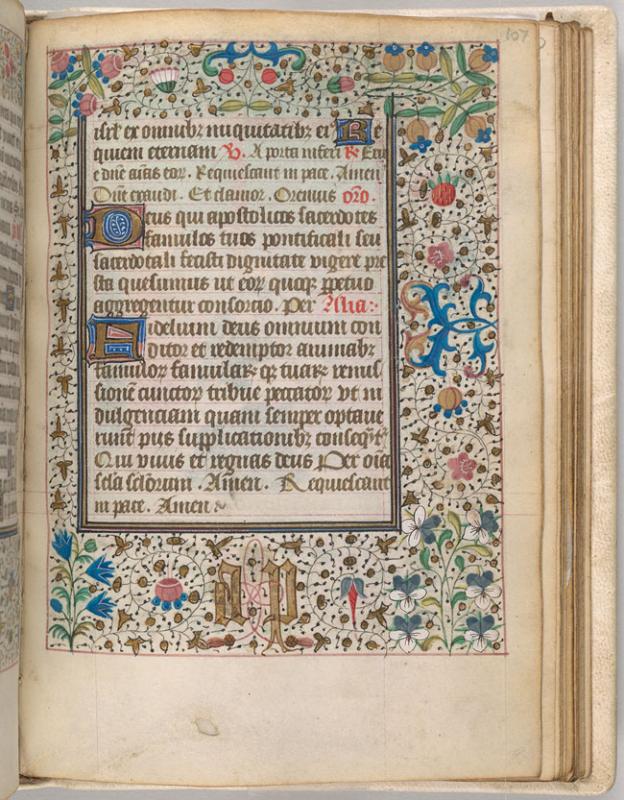 107
isrl' ex omnibꝫ iniquitatibꝫ eiꝰ Re
quiem eternam V. A porta inferi R Eru
e dn̄e aīas eoꝝ. Requiescant in pace. Amen
Dn̄e exaudi. Et clamor. Oremus oro.
Deus qui apostolicos sacerdotes
famulos tuos pontificali seu
sacerdotali fecisti dignitate vigere pre
sta quesumus ut eoꝝ quoqꝫ ꝑpetuo
aggregentur consorcio. Per Alia:
Fidelium deus omnium con
ditor et redemptor animabꝫ
famuloꝝ famulaꝝ qꝫ tuaꝝ remis
sionē cunctoꝝ tribue peccatoꝝ vt in
dulgenciam quam semper optaue
runt pijs supplicationibꝫ conseqt̄ʳ
Qui viuis et regnas deus Per oīa
scl̄a scl̄orum. Amen. Requiescant
in pace. Amen